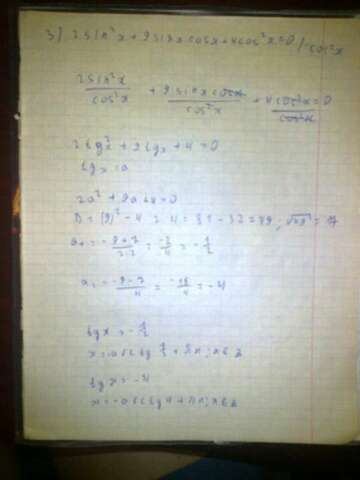 3) 2sin²x+9sinxcosx+4cos²x=0 /:cos²x
2sin²x/cos²x + 9sinxcosx/cos²x + 4cos²x/cos²x=0
2tg²x+9tgx+4=0
tgx=a
2a²+9a+4=0
D=(9)²-4·2·4=81-32=49, √49=7
a₁=(-9+7)/(2·2)=-2/4=-1/2
a₂=(-9-7)/4=-16/4=-4
tgx=-1/2
x=-arctg 1/2+πn; n∈z
tgx=-4
x=-arctg4+πn; n∈z